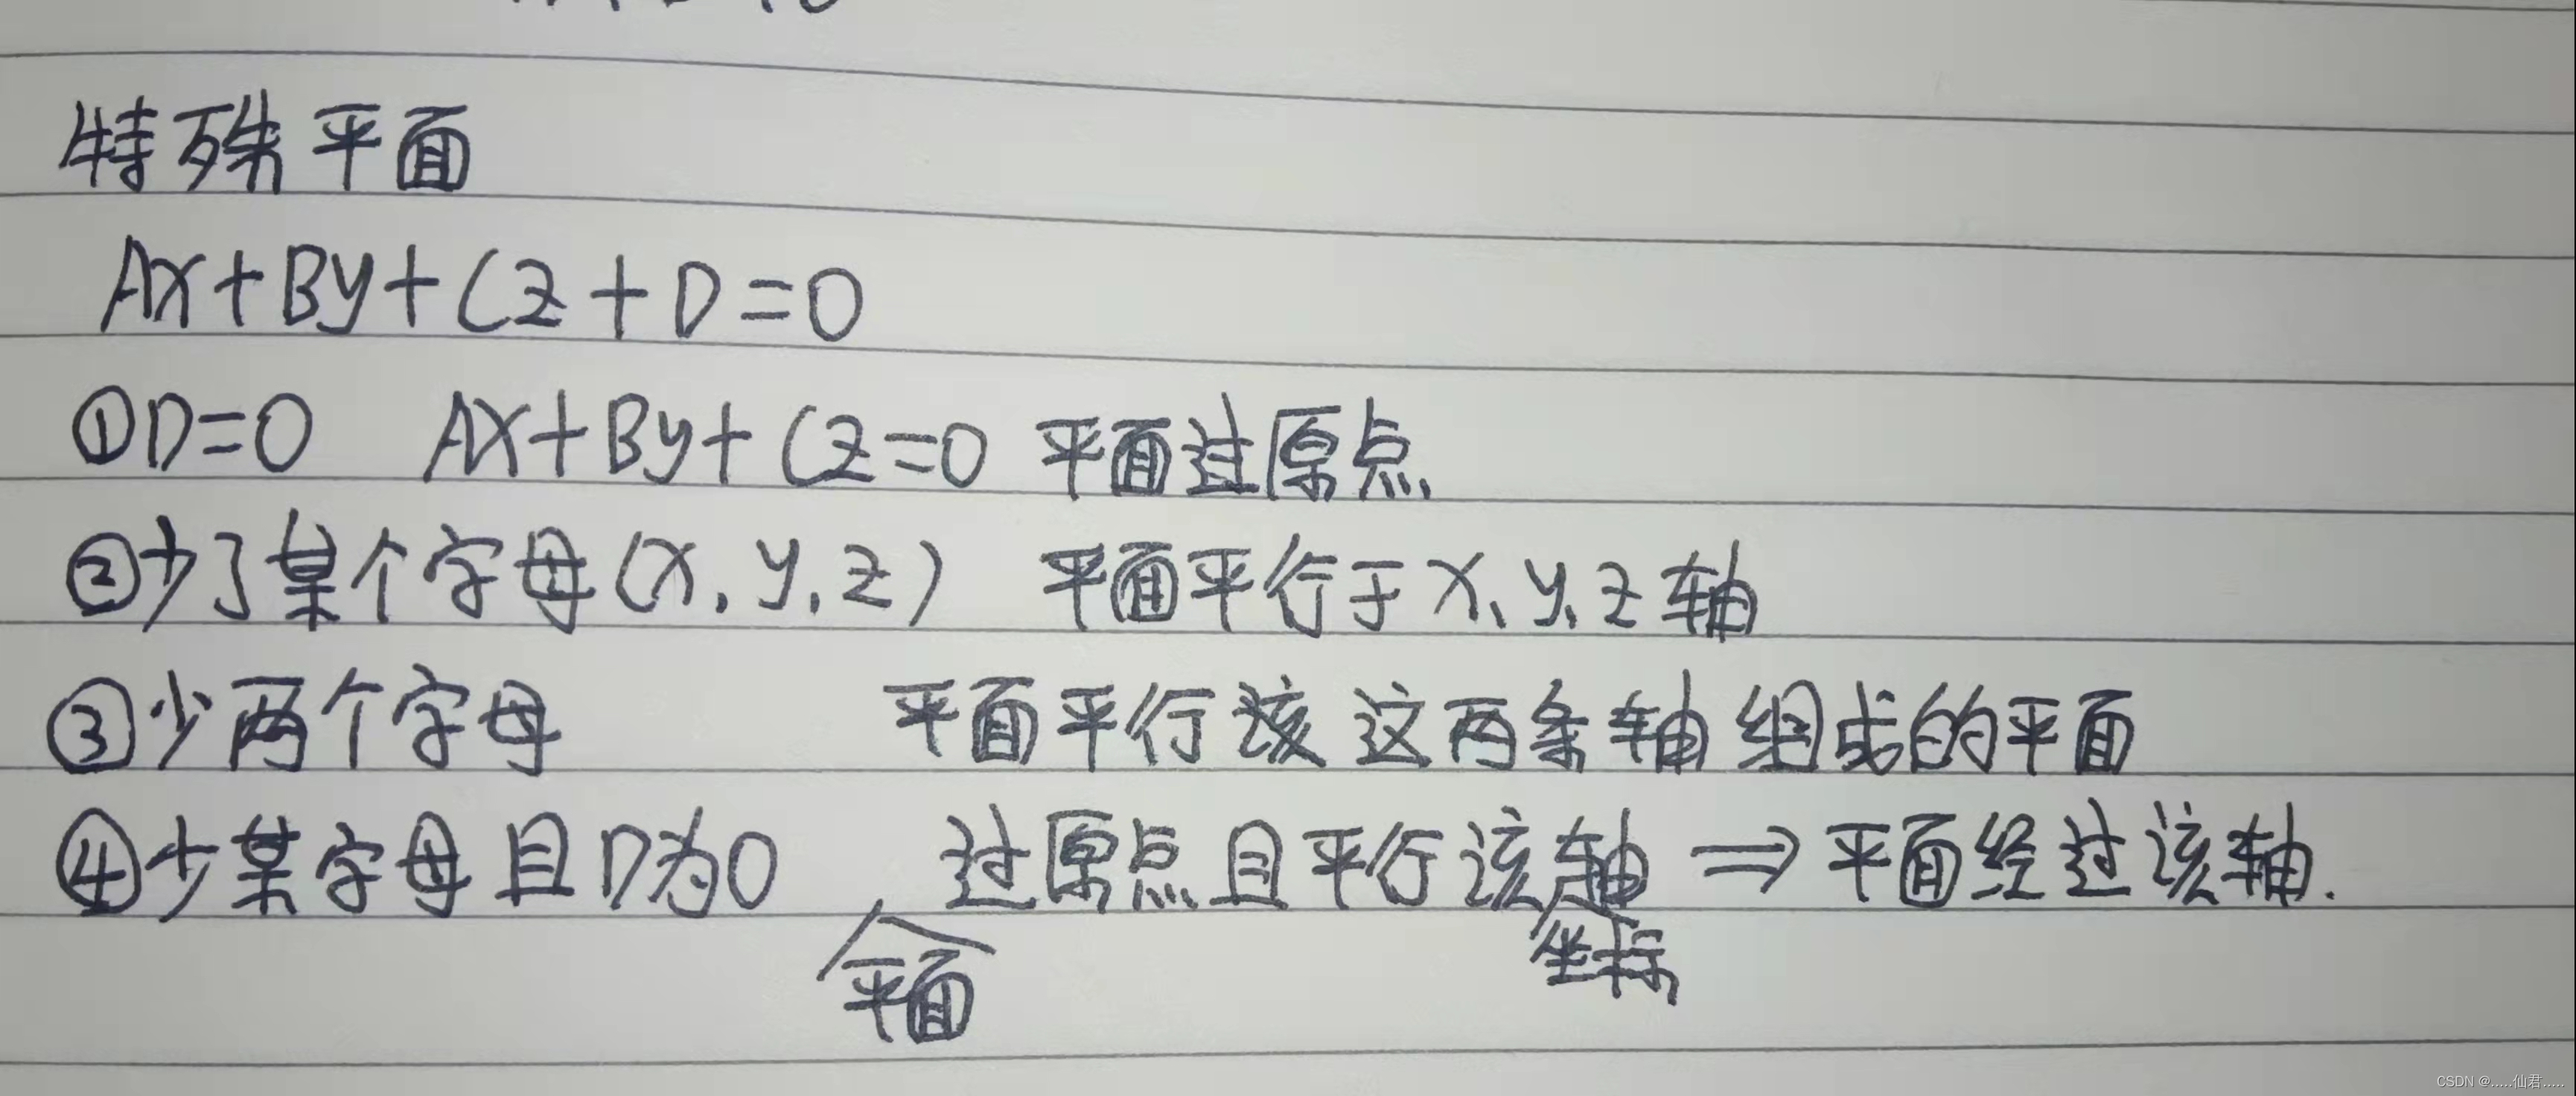 特殊平面
Ax+By+Cz+D=0
①D=0 Ax+By+Cz=0 平面过原点
②少了某个字母(x,y,z) 平面平行于x,y,z轴
③少两个字母 平面平行该这两条轴组成的平面
④少某字母且D为0 平面过原点且平行该坐标轴⇒平面经过该轴.
CSDN @.....仙君.....